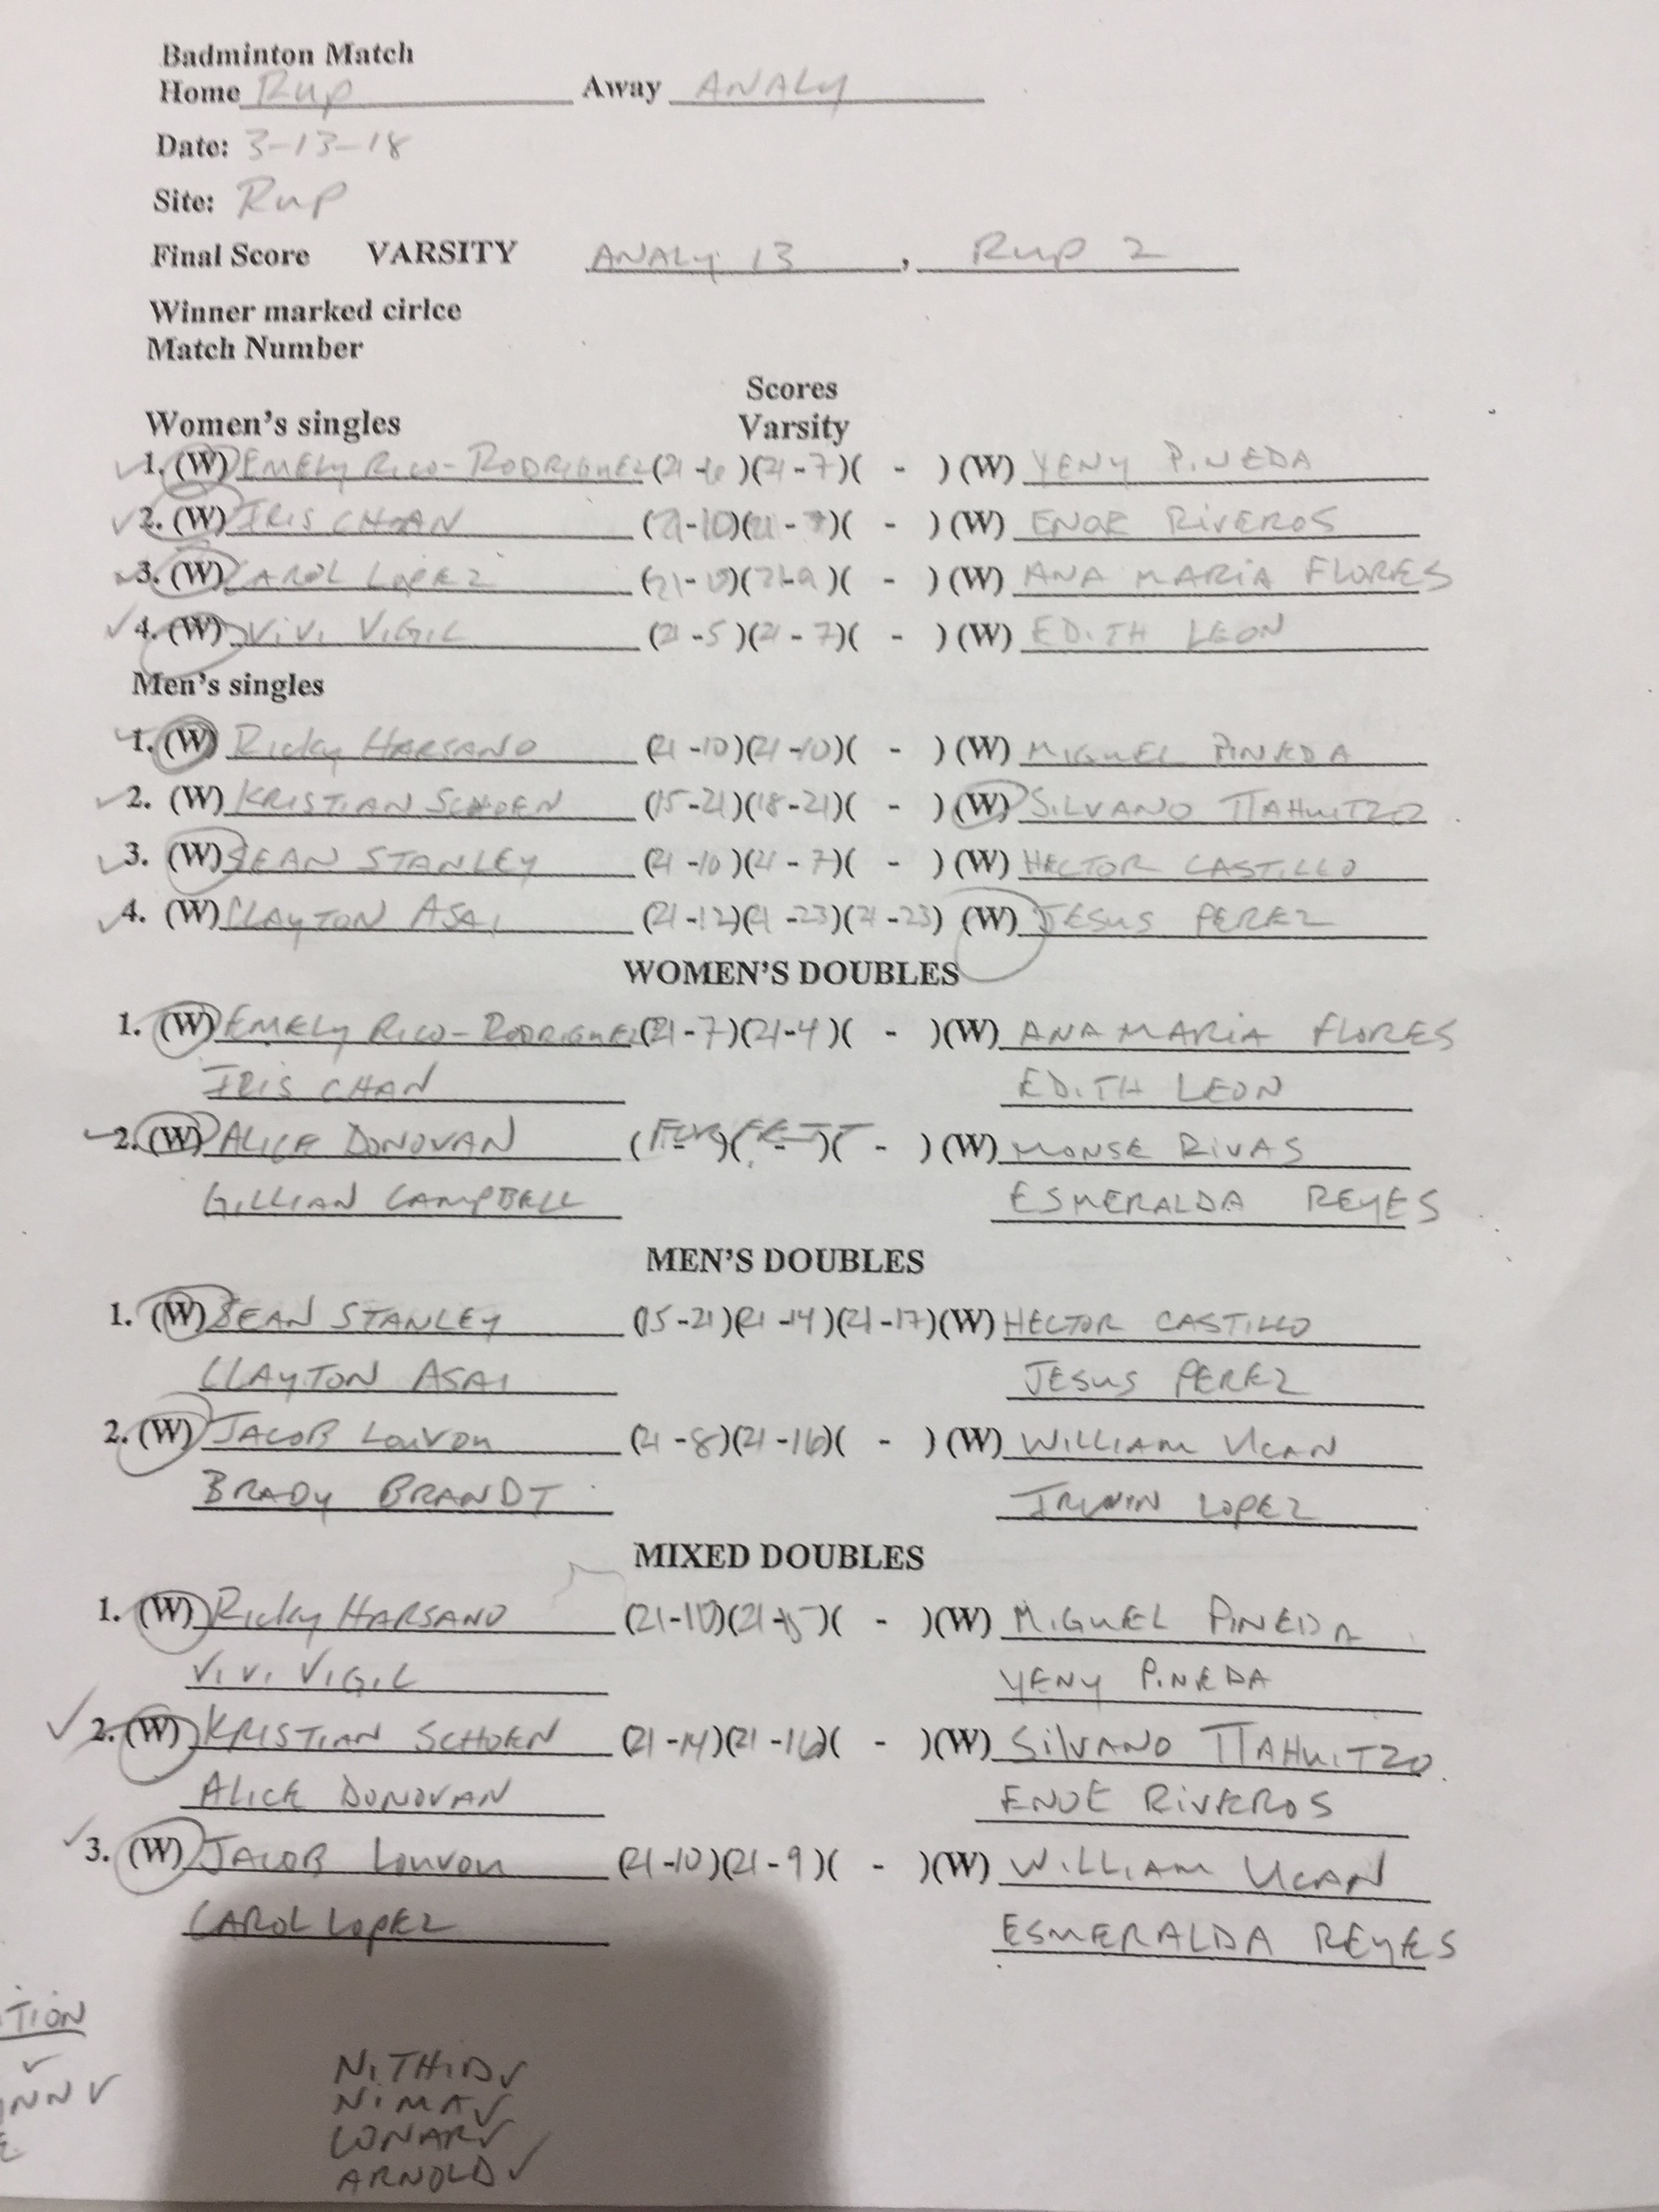 Badminton Match
Home Rup Away ANALY
Date: 3-13-18
Site: Rup
Final Score VARSITY ANALY 13, Rup 2
Winner marked cirlce
Match Number
Scores
Women's singles Varsity
1. (W) EMELY RICO-RODRIGUEZ (21-6)(21-7)( - ) (W) YENY PINEDA
2. (W) IRIS CHAN (21-10)(21- )( - ) (W) ENOE RIVEROS
3. (W) CAROL LOPEZ (21- )(21-9)( - ) (W) ANA MARIA FLORES
4. (W) VIVI VIGIL (21-5)(21-7)( - ) (W) EDITH LEON
Men's singles
1. (W) Ricky HARSANO (21-10)(21-10)( - ) (W) MIGUEL PINEDA
2. (W) KRISTIAN SCHOEN (15-21)(18-21)( - ) (W) SILVANO TLAHUITZO
3. (W) SEAN STANLEY (21-10)(21-7)( - ) (W) HECTOR CASTILLO
4. (W) CLAYTON ASAI (21-12)(21-23)(21-23) (W) JESUS PEREZ
WOMEN'S DOUBLES
1. (W) EMELY RICO-RODRIGUEZ (21-7)(21-4)( - )(W) ANA MARIA FLORES
IRIS CHAN EDITH LEON
2. (W) ALICE DONOVAN (FORFEIT) (W) MONSE RIVAS
GILLIAN CAMPBELL ESMERALDA REYES
MEN'S DOUBLES
1. (W) SEAN STANLEY (15-21)(21-14)(21-17)(W) HECTOR CASTILLO
CLAYTON ASAI JESUS PEREZ
2. (W) JACOB LOUVOU (21-8)(21-16)( - ) (W) WILLIAM UCAN
BRADY BRANDT IRWIN LOPEZ
MIXED DOUBLES
1. (W) Ricky HARSANO (21-10)(21-15)( - )(W) MIGUEL PINEDA
VIVI VIGIL YENY PINEDA
2. (W) KRISTIAN SCHOEN (21-14)(21-16)( - )(W) SILVANO TLAHUITZO
ALICE DONOVAN ENOE RIVEROS
3. (W) JACOB LOUVOU (21-10)(21-9)( - )(W) WILLIAM UCAN
CAROL LOPEZ ESMERALDA REYES
TION
NITHID✓
NIMA✓
CONAR✓
ARNOLD✓